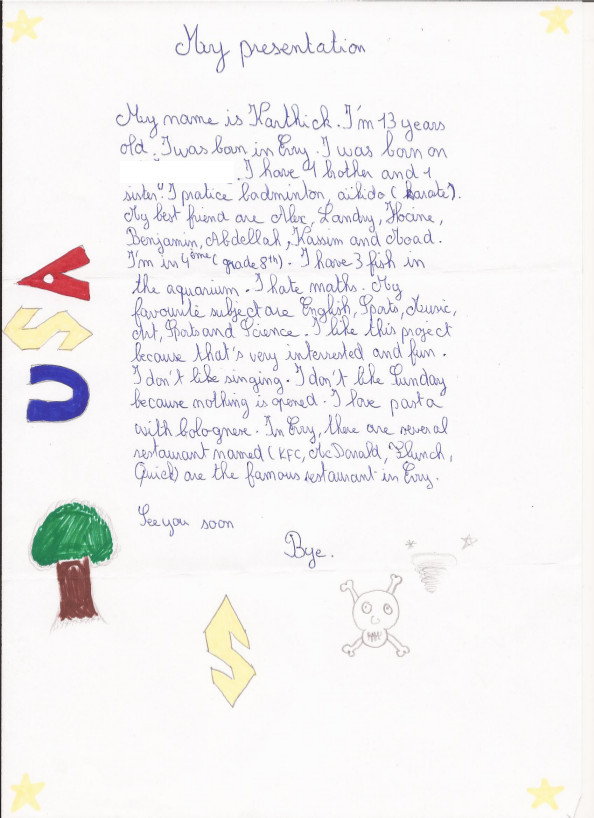 My presentation
My name is Karthick. I'm 13 years
old. I was born in Evry. I was born on
. I have 1 brother and 1
sister. I pratice badminton, aïkido (karate).
My best friend are Alex, Landry, Hocine,
Benjamin, Abdellah, Kassim and
I'm in 4ème (grade 8th). I have 3 fish in
the aquarium. I hate maths. My
favourite subject are English, Sports, Music,
Art, Sports and Science. I like this project
because that's very interested and fun.
I don't like singing. I don't like Sunday
because nothing is opened. I love pasta
with bolognese. In Evry, there are several
restaurant named (KFC, McDonald, Flunch,
Quick) are the famous restaurant in Evry.
See you soon
Bye.
USA
S